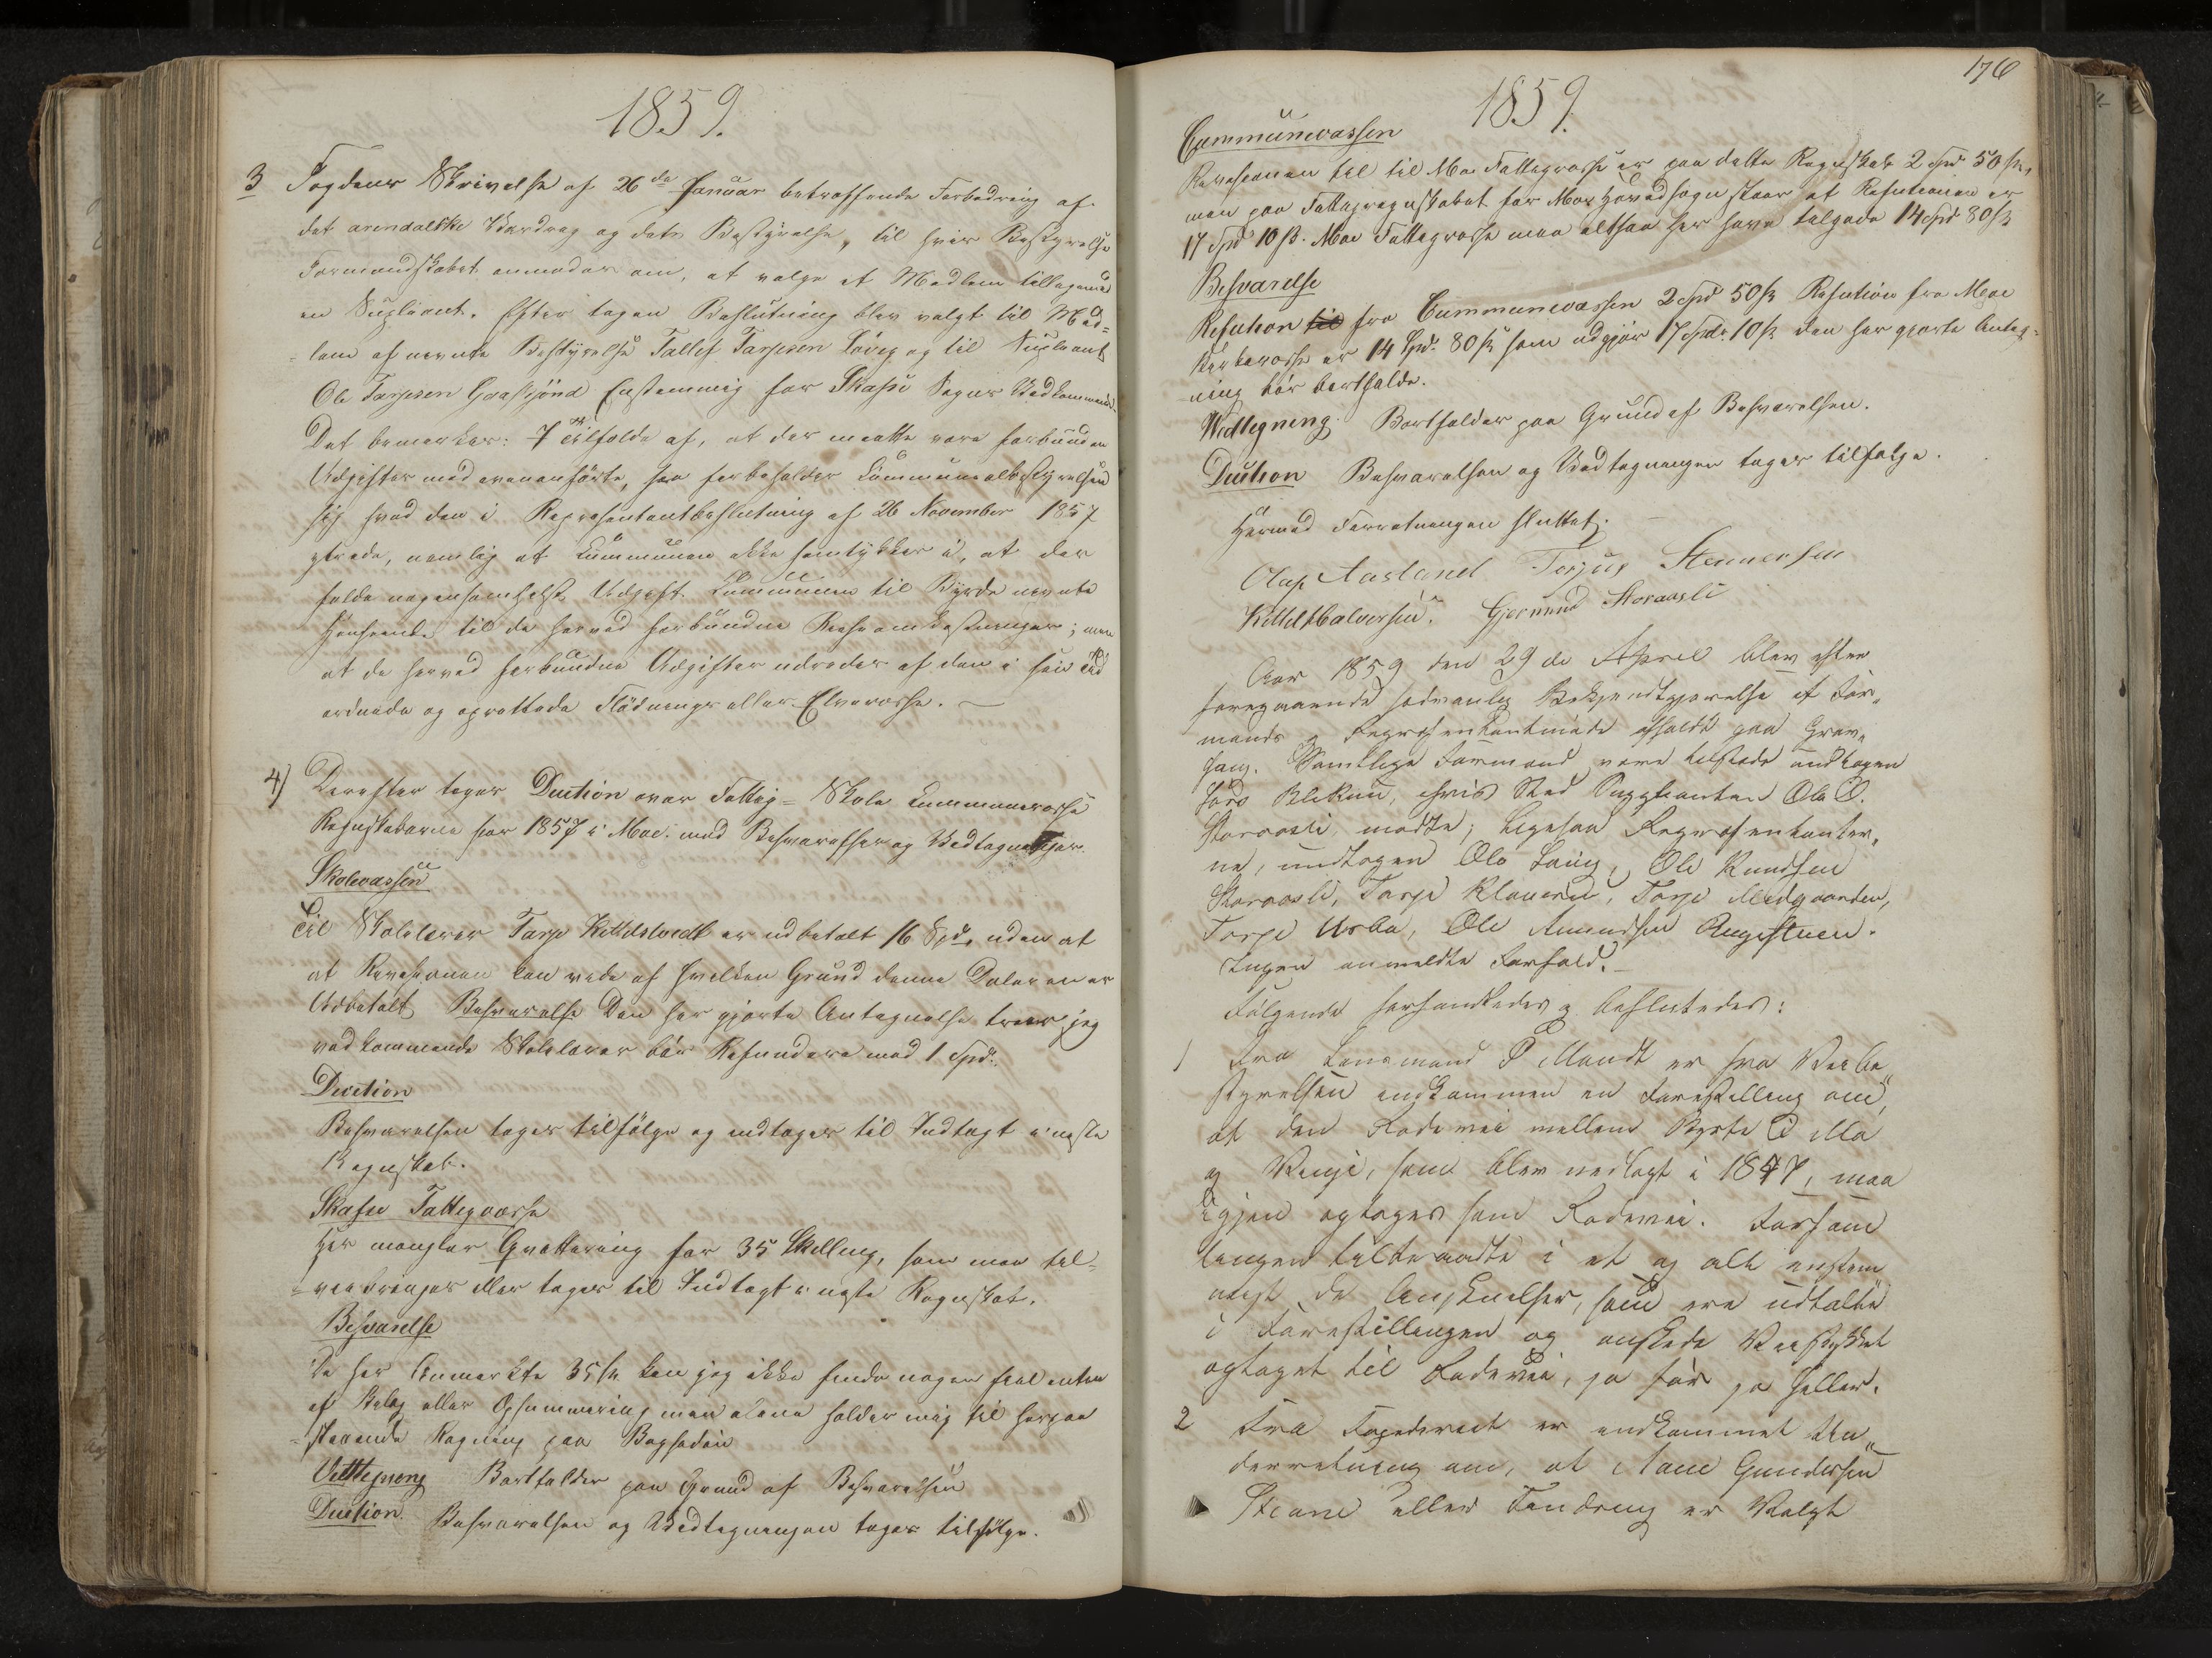 1859.
3 Fogdens Skrivelse af 26de Januar betræffende Forbedring af
det arendalske Vasdrag og dets Bestyrelse, til hvis Bestyrelse
Formandskabet anmodes om, at vælge et Medlem tilligemed
en Supleant. Efter tagen Beslutning blev valgt til Med=
=lem af nevnte Bestyrelse Tallef Tarjesen Löveg og til Supleant
Ole Tarjesen Enstemmig for Skafse Sogns Vedkommende
Det bemærkes: I Tilfælde af, at der maatte være forbunden
Udgifter med ovenanförte, saa forbeholder Communalbestyrelsen
sig hvad den i Repræsentantbeslutning af 26 November 1857
ytrede, nemlig at Kommunen ikke samtykker i, at der
falde nogensomhelst Udgift Kommunen til Byrde nevnte
Henseende til de herved forbundne Foranstaltninger; men
at de herved forbundne Udgifter udredes af den i sin Tid
ordnede og oprettede Flödnings eller Elvecasse.
4) Derefter toges Decition over Fattig= Skole Kommunecasse
Regnskaberne for 1857 i Moe. med Besvarelser og Vedtegninger.
Skolecassen
Til Skolelærer Tarje Kittelstvedt er udbetalt 16 Spd. uden at
at Revisionen kan vide af hvilken Grund denne Daler er
Udbetalt Besvarelse Den her gjorte Antegnelse troer jeg
vedkommende Skolelærer bör Refundere med 1 Spd.
Decition
Besvarelsen toges tilfölge og indtages til Indtægt i næste
Regnskab.
Skafse Fattigcasse
Her mangler Qvittering for 35 Skilling, som maa til=
=veiebringes eller tages til Indtægt i næste Regnskab.
Besvarelse
De her Anmærkte 35 ß kan jeg ikke finde nogen feil enten
af Belög eller Opsummering men alene holder mig til herpaa
=staaende Regning paa Bagsiden
Vedtegning Bortfalder paa Grund af Besvarelsen
Decition. Besvarelsen og Vedtegningen toges tilfölge.
176
1859.
Communecassen
Revisionen til til Moe Fattigcasse er paa dette Regnskab 2 Spd 50 ß,
men paa Fattigregnskabet for Moe Hovedsogn staar at Refutionen er
17 Spd 10 ß. Moe Fattigcasse maa altsaa her have tilgode 14 Spd 80 ß
Besvarelse
Refution til fra Communecassen 2 Spd 50 ß Refution fra Moe
Kirkecasse er 14 Spd. 80 ß som udgjör 17 Spd. 10 ß den her gjorte Anteg=
ning bör bortfalde.
Vedtegning. Bortfalder paa Grund af Besvarelsen.
Decition Besvarelsen og Vedtegningen toges tilfølge.
Hermed Forretningen sluttet.
Olaf Aasland Torjus Stennersen
Kittil Halvorsen. Gjermund Storaasli
Aar 1859 den 29de April blev efter
foregaaende sedvanlig Bekjendtgjørelse et For„
mands og Repræsentantmøde afholdt paa Grav„
haug. Samtlige Formænd vare tilstede undtagen
hvis Sted Suppleanten Ole O.
Storaasli, mødte; ligesaa Repræsentanter„
ne, undtagen Ole Laug, Ole Knudsen
Storaasli, Tarje Klaverud, Tarje Midgaarden,
Torge Urbø, Ole Amundsen
Ingen anmeldte Forfald.
Følgende forhandledes og besluttedes:
1 Fra Lensmand P Mandt er fra Veibe„
styrelsen indkommen en Forestilling om,
at den Rodevei mellem Byrte i Mo
og Vinje, som blev nedlagt i 1847, maa
igjen optages som Rodevei. Forsam
lingen tiltraadte i et og alt enstem
migt de Anskuelser, som ere udtalte
i Forestillingen og ønskede Veistykket
optaget til Rodevei, jo før jo heller.
2 Fra Fogderiet er indkommet Un„
derretning om, at Aane Gundersen
eller er Valgt